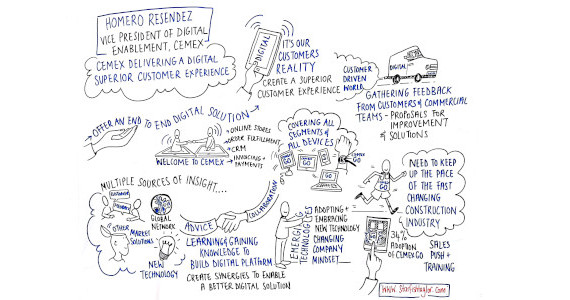 HOMERO RESENDEZ
VICE PRESIDENT OF DIGITAL
ENABLEMENT, CEMEX
CEMEX DELIVERING A DIGITAL
SUPERIOR CUSTOMER EXPERIENCE
DIGITAL
IT'S OUR
CUSTOMERS
REALITY
CREATE A SUPERIOR
CUSTOMER EXPERIENCE
CUSTOMER
DRIVEN
WORLD
DIGITAL
GATHERING FEEDBACK
FROM CUSTOMERS & COMMERCIAL
TEAMS - PROPOSALS FOR
IMPROVEMENT
& SOLUTIONS
OFFER AN END TO END DIGITAL SOLUTION
WELCOME TO CEMEX
ONLINE STORES
ORDER FULFILLMENT
CRM
INVOICING +
PAYMENTS
COVERING ALL
SEGMENTS &
ALL DEVICES
GO
GO
GO
CEMEX
GO
MULTIPLE SOURCES OF INSIGHT....
CUSTOMER
INSIGHTS
OTHER
MARKET
SOLUTIONS
GLOBAL
NETWORK
NEW
TECHNOLOGY
ADVICE
COLLABORATION
LEARNING & GAINING
KNOWLEDGE TO
BUILD DIGITAL PLATFORM
CREATE SYNERGIES TO ENABLE
A BETTER DIGITAL SOLUTION
EMERGING
TECHNOLOGIES
ADOPTING +
EMBRACING
NEW TECHNOLOGY
CHANGING
COMPANY
MINDSET
GO
NEED TO KEEP
UP THE PACE
OF THE FAST
CHANGING
CONSTRUCTION
INDUSTRY
34%
ADOPTION
OF CEMEX GO
SALES
PUSH +
TRAINING